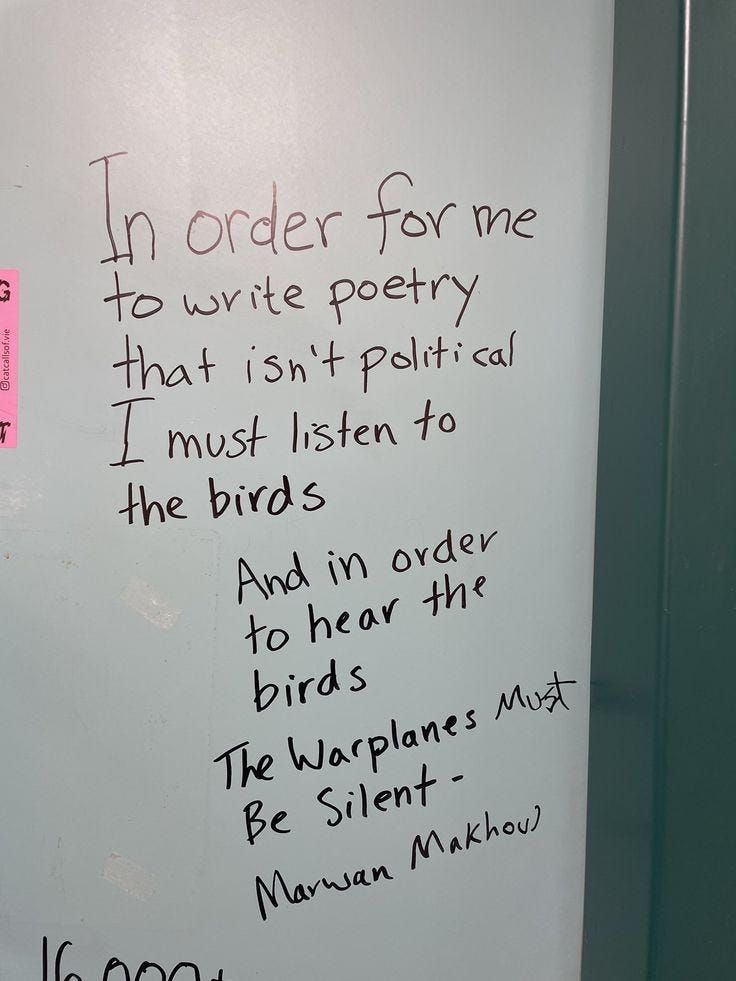 In order for me
to write poetry
that isn't political
I must listen to
the birds
And in order
to hear the
birds
The Warplanes Must
Be Silent -
Marwan Makhoul
@catcallsof.vie
G
T
16,000+